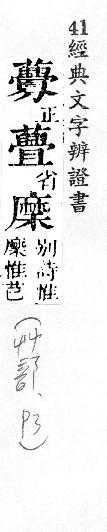 41 經典文字辨證書
虋正省穈別詩惟穈惟芑
(艸部, P3)